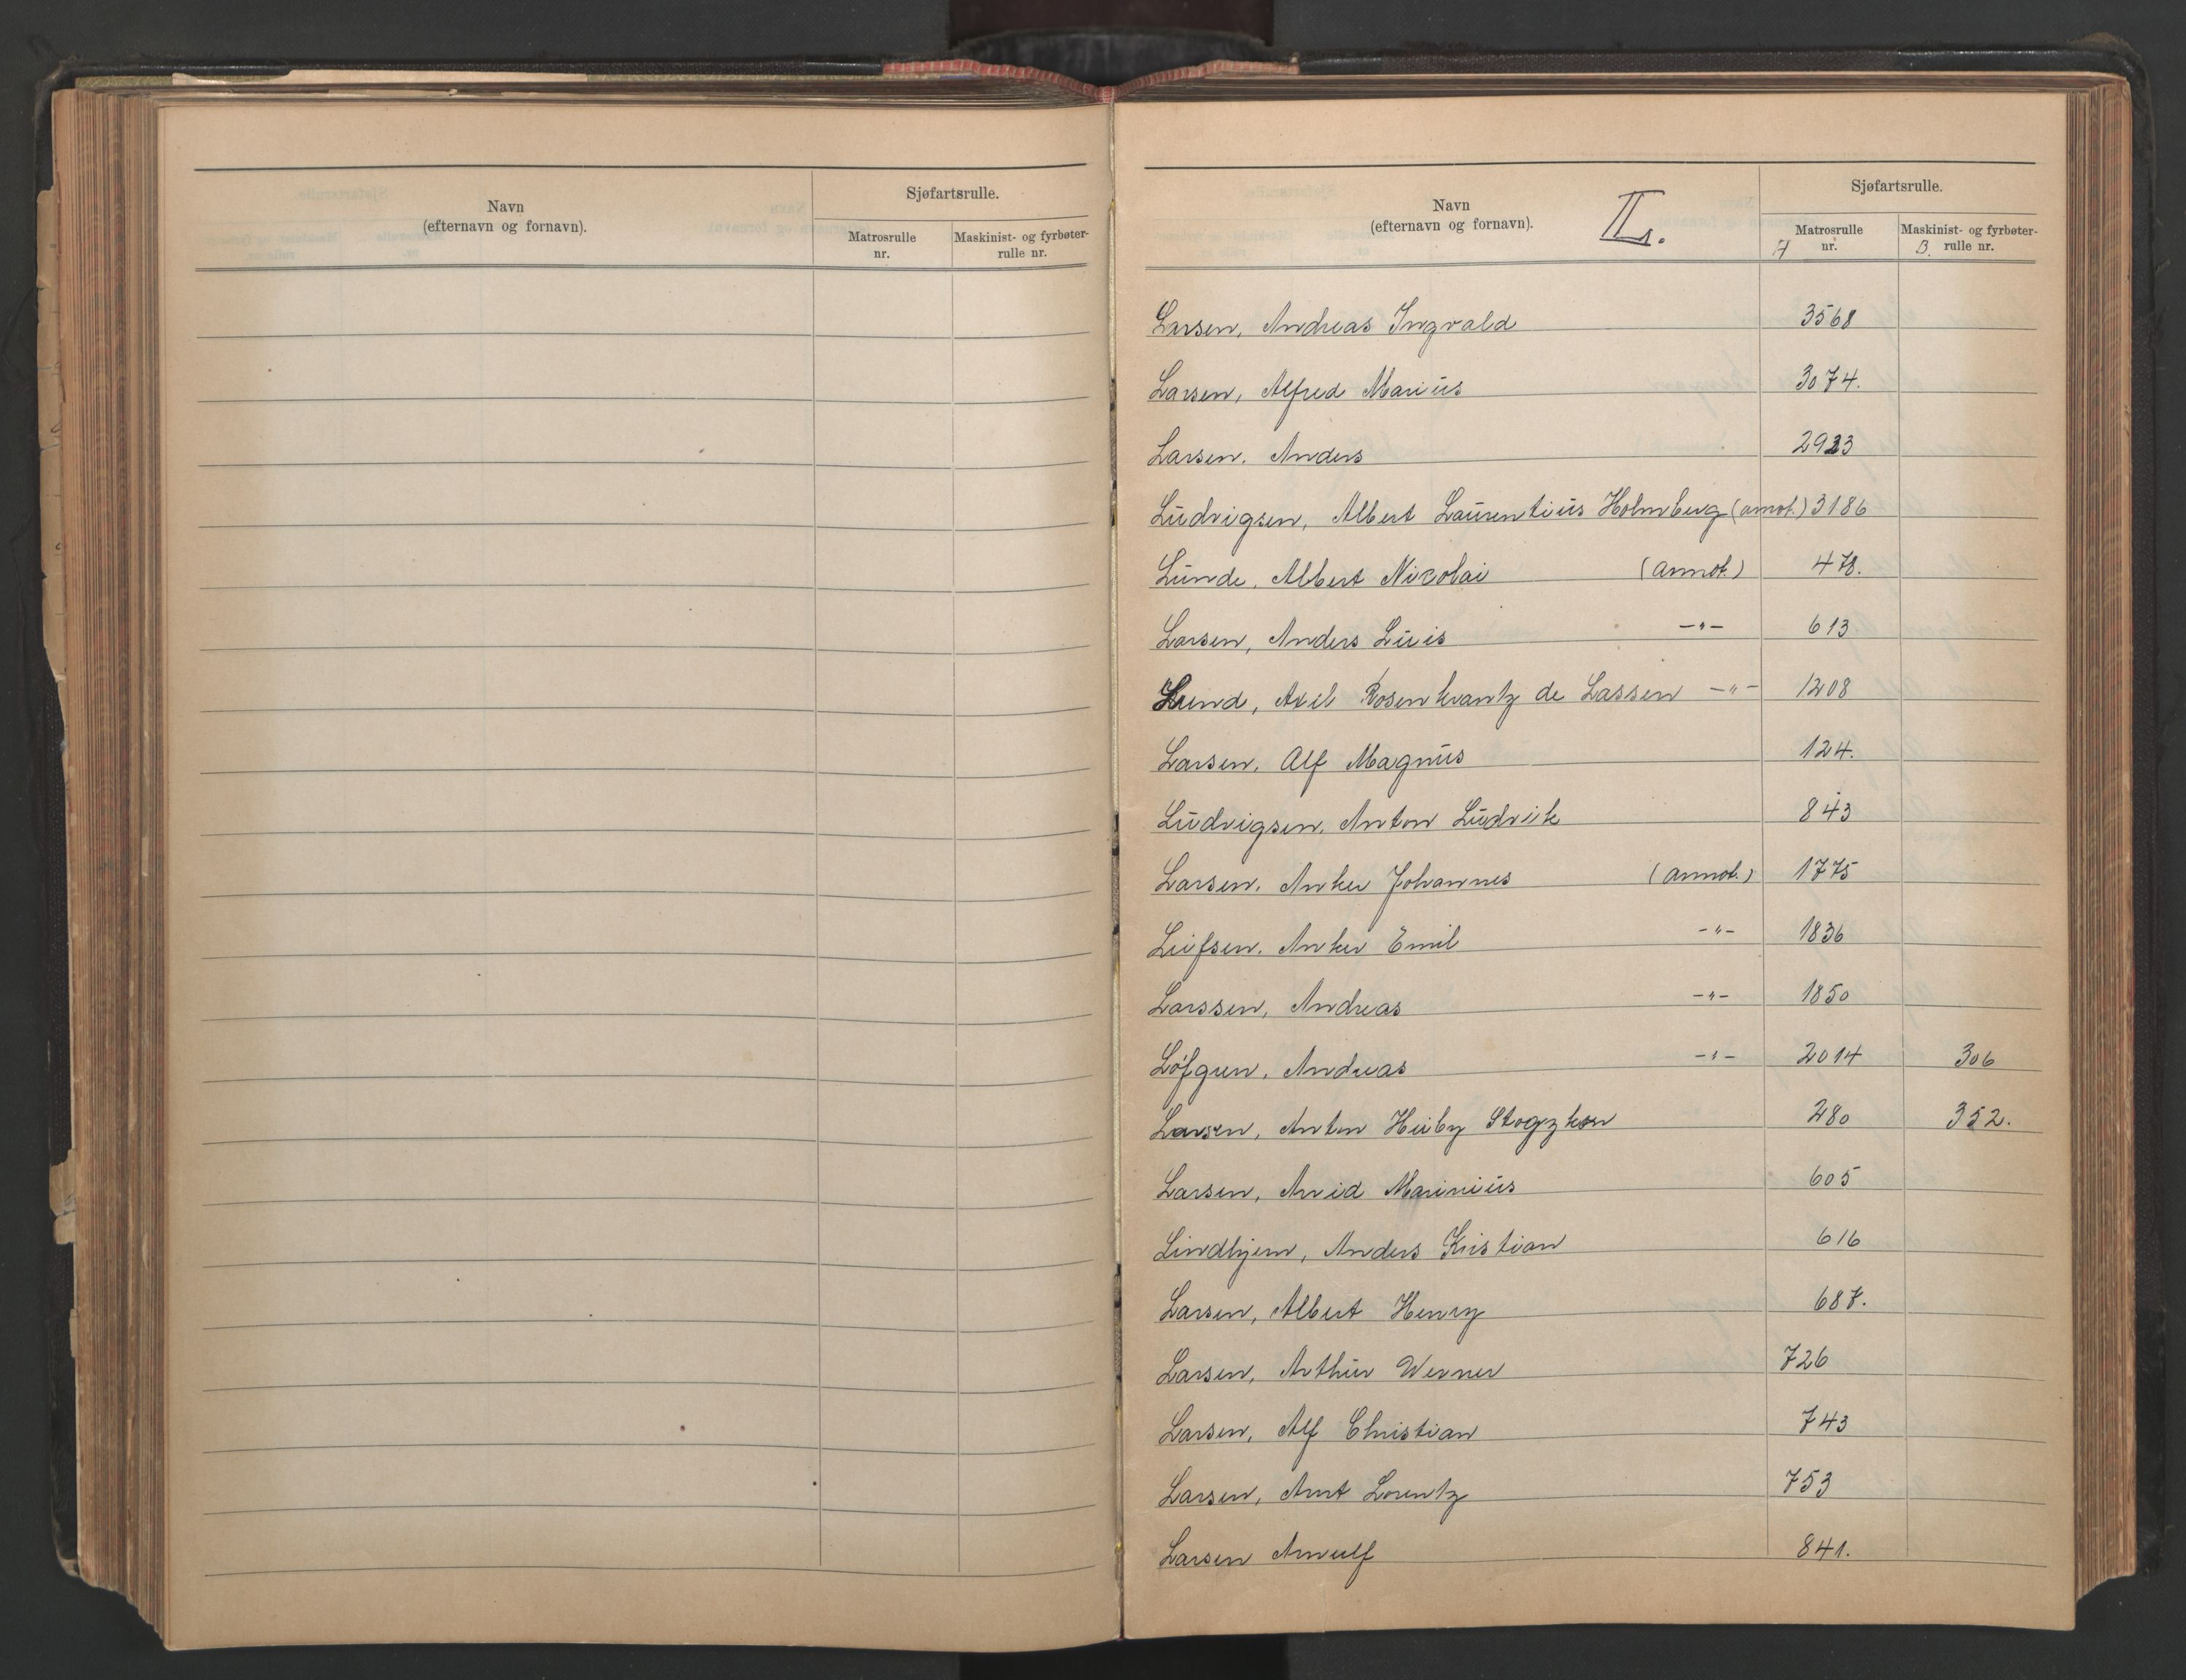 Navn
(efternavn og fornavn).
Sjøfartsrulle.
Matrosrulle
nr.
Maskinist- og fyrbøter-
rulle nr.
Navn
(efternavn og fornavn).
II.
Sjøfartsrulle.
A Matrosrulle
nr.
B. Maskinist- og fyrbøter-
rulle nr.
Larsen, Andreas Ingvald 3568
Larsen, Alfred Marius 3074.
Larsen. Anders 2923
Ludvigsen, Albert Laurentius Holmberg (annot.) 3186
Lunde, Albert Nicolai (annot.) 478.
Larsen, Anders Luis -"- 613
Lund, Axel Rosenkrantz de Lassen -"- 1208
Larsen, Alf Magnus 124.
Ludvigsen, Anton Ludvik 843
Larsen, Anker Johannes (annot.) 1775
Leifsen. Anker Emil -"- 1836
Larssen, Andreas -"- 1850
Løfgren, Andreas -"- 2014 306
Larsen, Anton 280 352.
Larsen, Arvid Marinius 605
Lindhjem, Anders Kristian 616
Larsen, Albert Henry 687.
Larsen, Arthur Werner 726
Larsen, Alf Christian 743
Larsen, Arnt Lorentz 753
Larsen Arnulf 841.